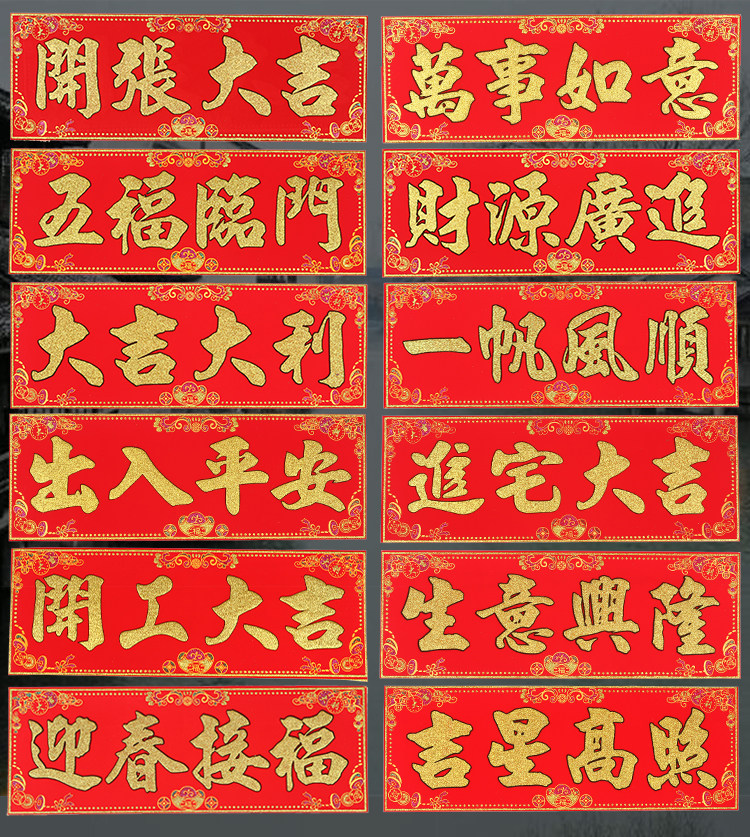 開張大吉
萬事如意
五福臨門
財源廣進
大吉大利
一帆風順
出入平安
進宅大吉
開工大吉
生意興隆
迎春接福
吉星高照